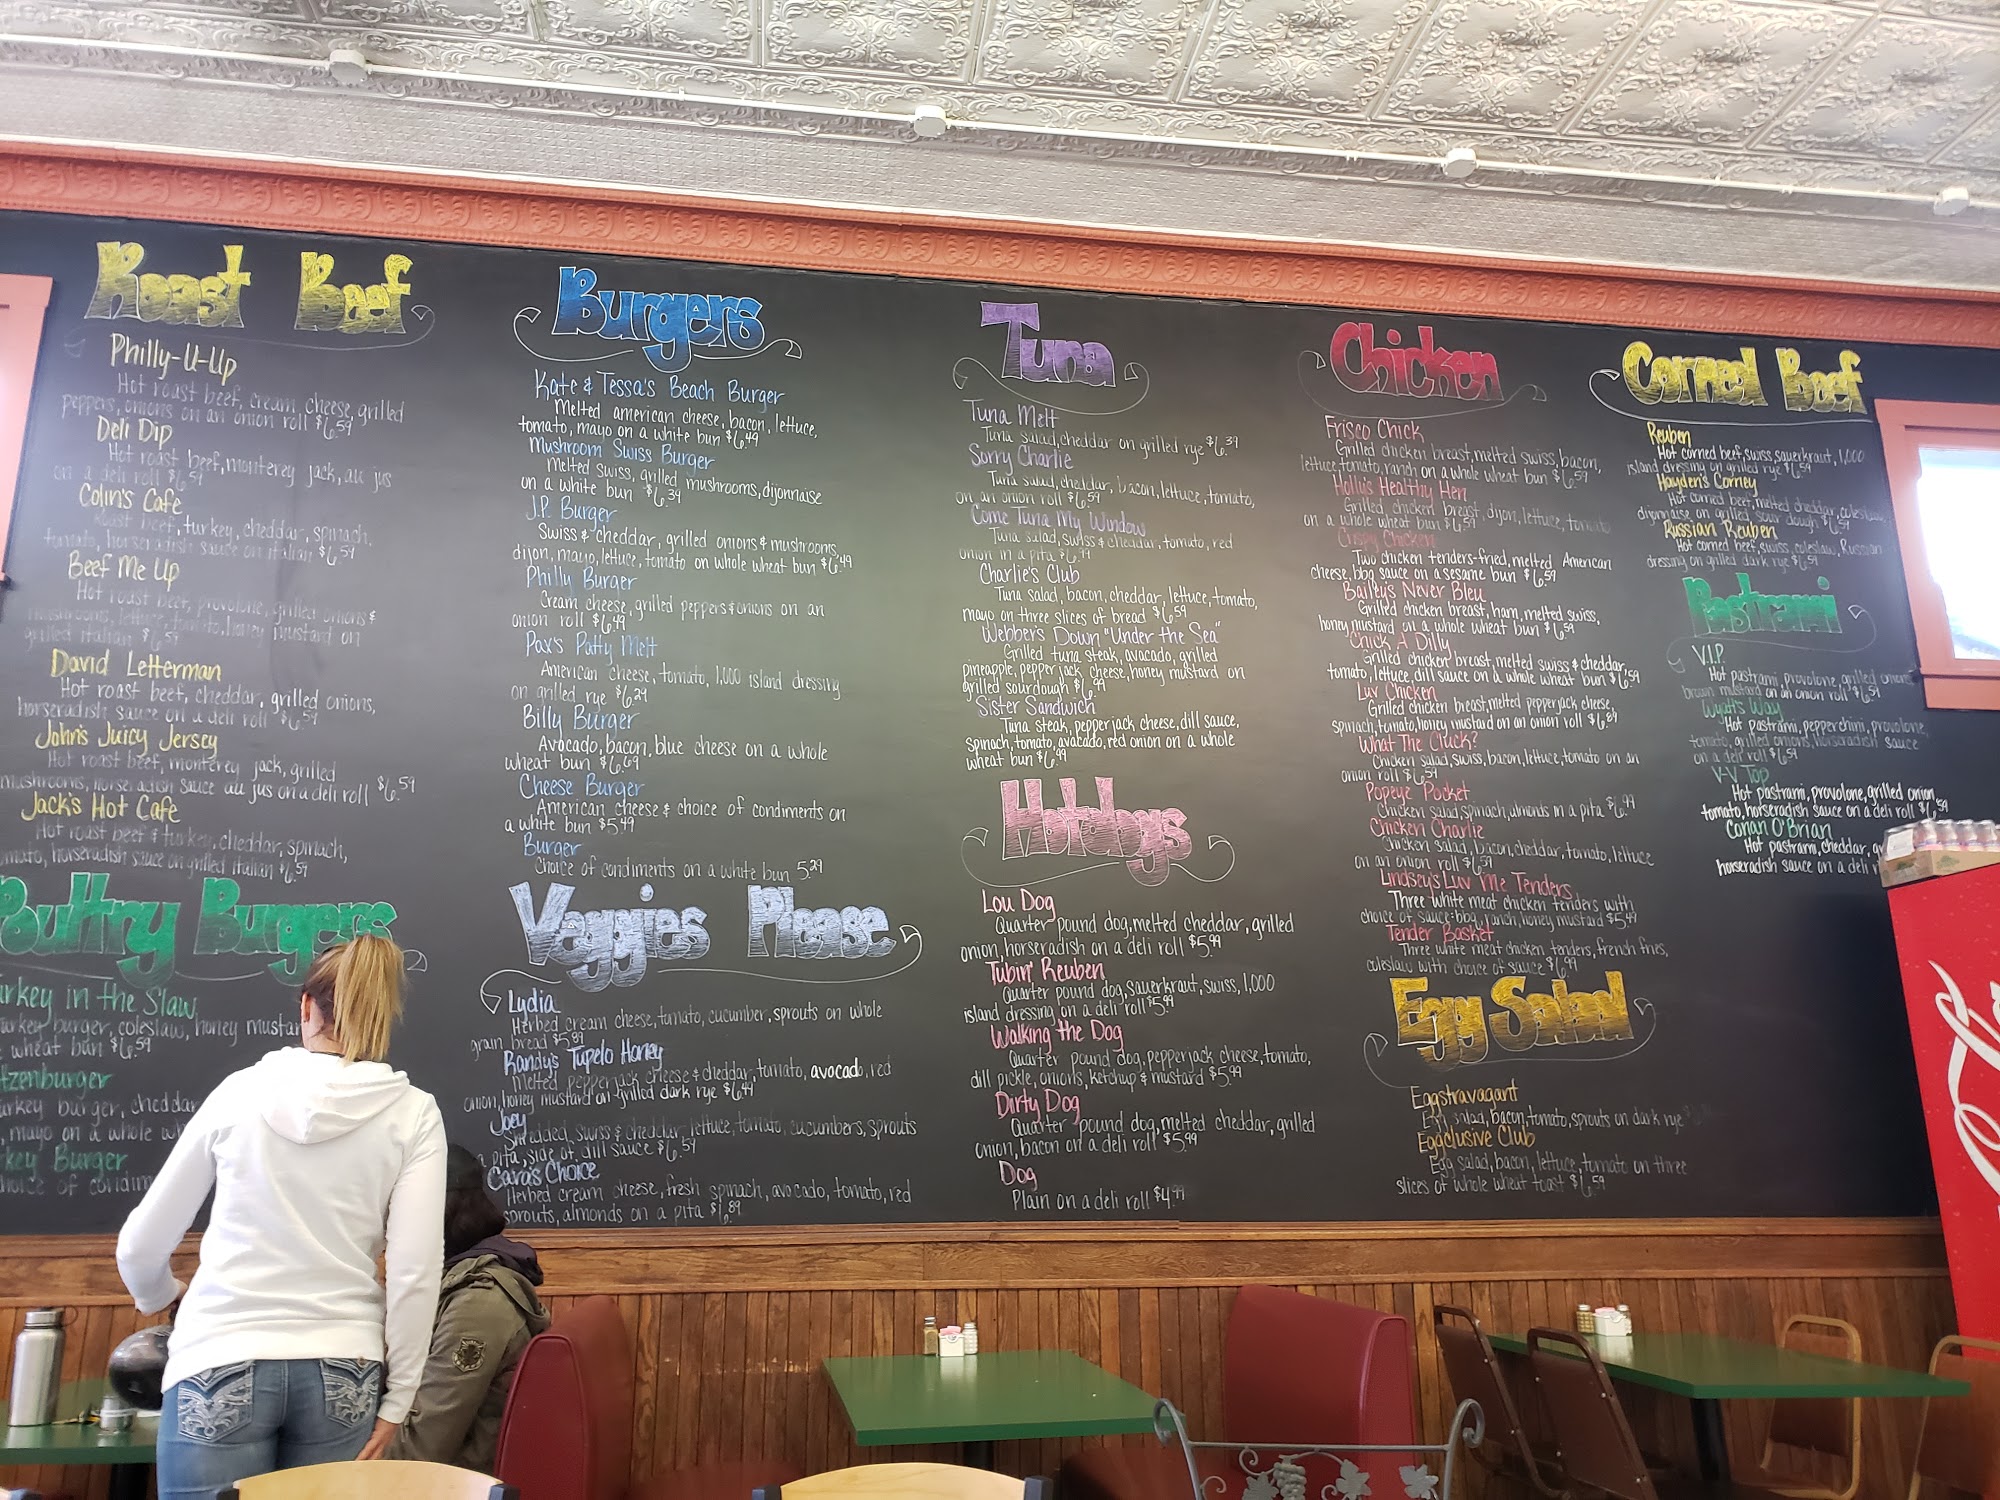 Roast Beef
Philly-U-Up
Hot roast beef, cream cheese, grilled
peppers, onions on an onion roll $6.59
Deli Dip
Hot roast beef, monterey jack, au jus
on a deli roll $6.59
Colin's Cafe
Roast beef, turkey, cheddar, spinach,
tomato, horseradish sauce on italian $6.59
Beef Me Up
Hot roast beef, provolone, grilled onions &
mushrooms, lettuce, tomato, honey mustard on
grilled italian $6.59
David Letterman
Hot roast beef, cheddar, grilled onions,
horseradish sauce on a deli roll $6.59
John's Juicy Jersey
Hot roast beef, monterey jack, grilled
mushrooms, horseradish sauce au jus on a deli roll $6.59
Jack's Hot Cafe
Hot roast beef & turkey, cheddar, spinach,
omato, horseradish sauce on grilled italian $6.59
Poultry Burgers
urkey in the Slaw
urkey burger, coleslaw, honey mustar
wheat bun $6.59
tzenburger
urkey burger, cheddar
, mayo on a whole wh
key Burger
hoice of condim
Burgers
Kate & Tessa's Beach Burger
Melted american cheese, bacon, lettuce,
tomato, mayo on a white bun $6.49
Mushroom Swiss Burger
Melted swiss, grilled mushrooms, dijonnaise
on a white bun $6.39
J.P. Burger
Swiss & cheddar, grilled onions & mushrooms,
dijon, mayo, lettuce, tomato on whole wheat bun $6.49
Philly Burger
Cream cheese, grilled peppers & onions on an
onion roll $6.49
Pax's Patty Melt
American cheese, tomato, 1,000 island dressing
on grilled rye $6.29
Billy Burger
Avocado, bacon, blue cheese on a whole
wheat bun $6.69
Cheese Burger
American cheese & choice of condiments on
a white bun $5.49
Burger
Choice of condiments on a white bun 5.29
Veggies Please
Lydia
Herbed cream cheese, tomato, cucumber, sprouts on whole
grain bread $5.89
Randy's Tupelo Honey
Melted pepperjack cheese & cheddar, tomato, avocado, red
onion, honey mustard on grilled dark rye $6.49
Joey
Shredded swiss & cheddar, lettuce, tomato, cucumbers, sprouts
a pita, side of dill sauce $6.59
Cara's Choice
Herbed cream cheese, fresh spinach, avocado, tomato, red
sprouts, almonds on a pita $6.89
Tuna
Tuna Melt
Tuna salad, cheddar on grilled rye $6.39
Sorry Charlie
Tuna salad, cheddar, bacon, lettuce, tomato,
on an onion roll $6.59
Come Tuna My Window
Tuna salad, swiss & cheddar, tomato, red
onion in a pita $6.99
Charlie's Club
Tuna salad, bacon, cheddar, lettuce, tomato,
mayo on three slices of bread $6.59
Webber's Down "Under the Sea"
Grilled tuna steak, avocado, grilled
pineapple, pepper jack cheese, honey mustard on
grilled sourdough $6.99
Sister Sandwich
Tuna steak, pepper jack cheese, dill sauce,
spinach, tomato, avocado, red onion on a whole
wheat bun $6.99
Hotdogs
Lou Dog
Quarter pound dog, melted cheddar, grilled
onion, horseradish on a deli roll $5.99
Tubin' Reuben
Quarter pound dog, sauerkraut, swiss, 1,000
island dressing on a deli roll $5.99
Walking the Dog
Quarter pound dog, pepperjack cheese, tomato,
dill pickle, onions, ketchup & mustard $5.99
Dirty Dog
Quarter pound dog, melted cheddar, grilled
onion, bacon on a deli roll $5.99
Dog
Plain on a deli roll $4.99
Chicken
Frisco Chick
Grilled chicken breast, melted swiss, bacon,
lettuce, tomato, ranch on a whole wheat bun $6.59
Holly's Healthy Hen
Grilled, chicken breast, dijon, lettuce, tomato
on a whole wheat bun $6.59
Crispy Chicken
Two chicken tenders-fried, melted American
cheese, bbq sauce on a sesame bun $6.59
Bailey's Never Bleu
Grilled chicken breast, ham, melted swiss,
honey mustard on a whole wheat bun $6.59
Chick A Dilly
Grilled chicken breast, melted swiss & cheddar,
tomato, lettuce, dill sauce on a whole wheat bun $6.59
Luv Chicken
Grilled chicken breast, melted pepperjack cheese,
spinach, tomato, honey mustard on an onion roll $6.89
What The Cluck?
Chicken salad, swiss, bacon, lettuce, tomato on an
onion roll $6.59
Popeye Pocket
Chicken salad, spinach, almonds in a pita $6.99
Chicken Charlie
Chicken salad, bacon, cheddar, tomato, lettuce
on an onion roll $6.59
Lindsey's Luv Me Tenders
Three white meat chicken tenders with
choice of sauce: bbq, ranch, honey mustard $5.49
Tender Basket
Three white meat chicken tenders, french fries,
coleslaw with choice of sauce $6.99
Egg Salad
Eggstravagant
Egg salad, bacon, tomato, sprouts on dark rye
Eggclusive Club
Egg salad, bacon, lettuce, tomato on three
slices of whole wheat toast $6.59
Corned Beef
Reuben
Hot corned beef, swiss, sauerkraut, 1,000
island dressing on grilled rye $6.59
Hayden's Corney
Hot corned beef, melted cheddar, coleslaw,
dijonnaise on grilled sour dough $6.59
Russian Reuben
Hot corned beef, swiss, coleslaw, Russian
dressing on grilled dark rye $6.59
Pastrami
V.I.P.
Hot pastrami, provolone, grilled onions
brown mustard on an onion roll $6.59
Wyatt's Way
Hot pastrami, pepperchini, provolone,
tomato, grilled onions, horseradish sauce
on a deli roll $6.59
V-V Top
Hot pastrami, provolone, grilled onion,
tomato, horseradish sauce on a deli roll $6.59
Conan O'Brian
Hot pastrami, cheddar, g
horseradish sauce on a deli r